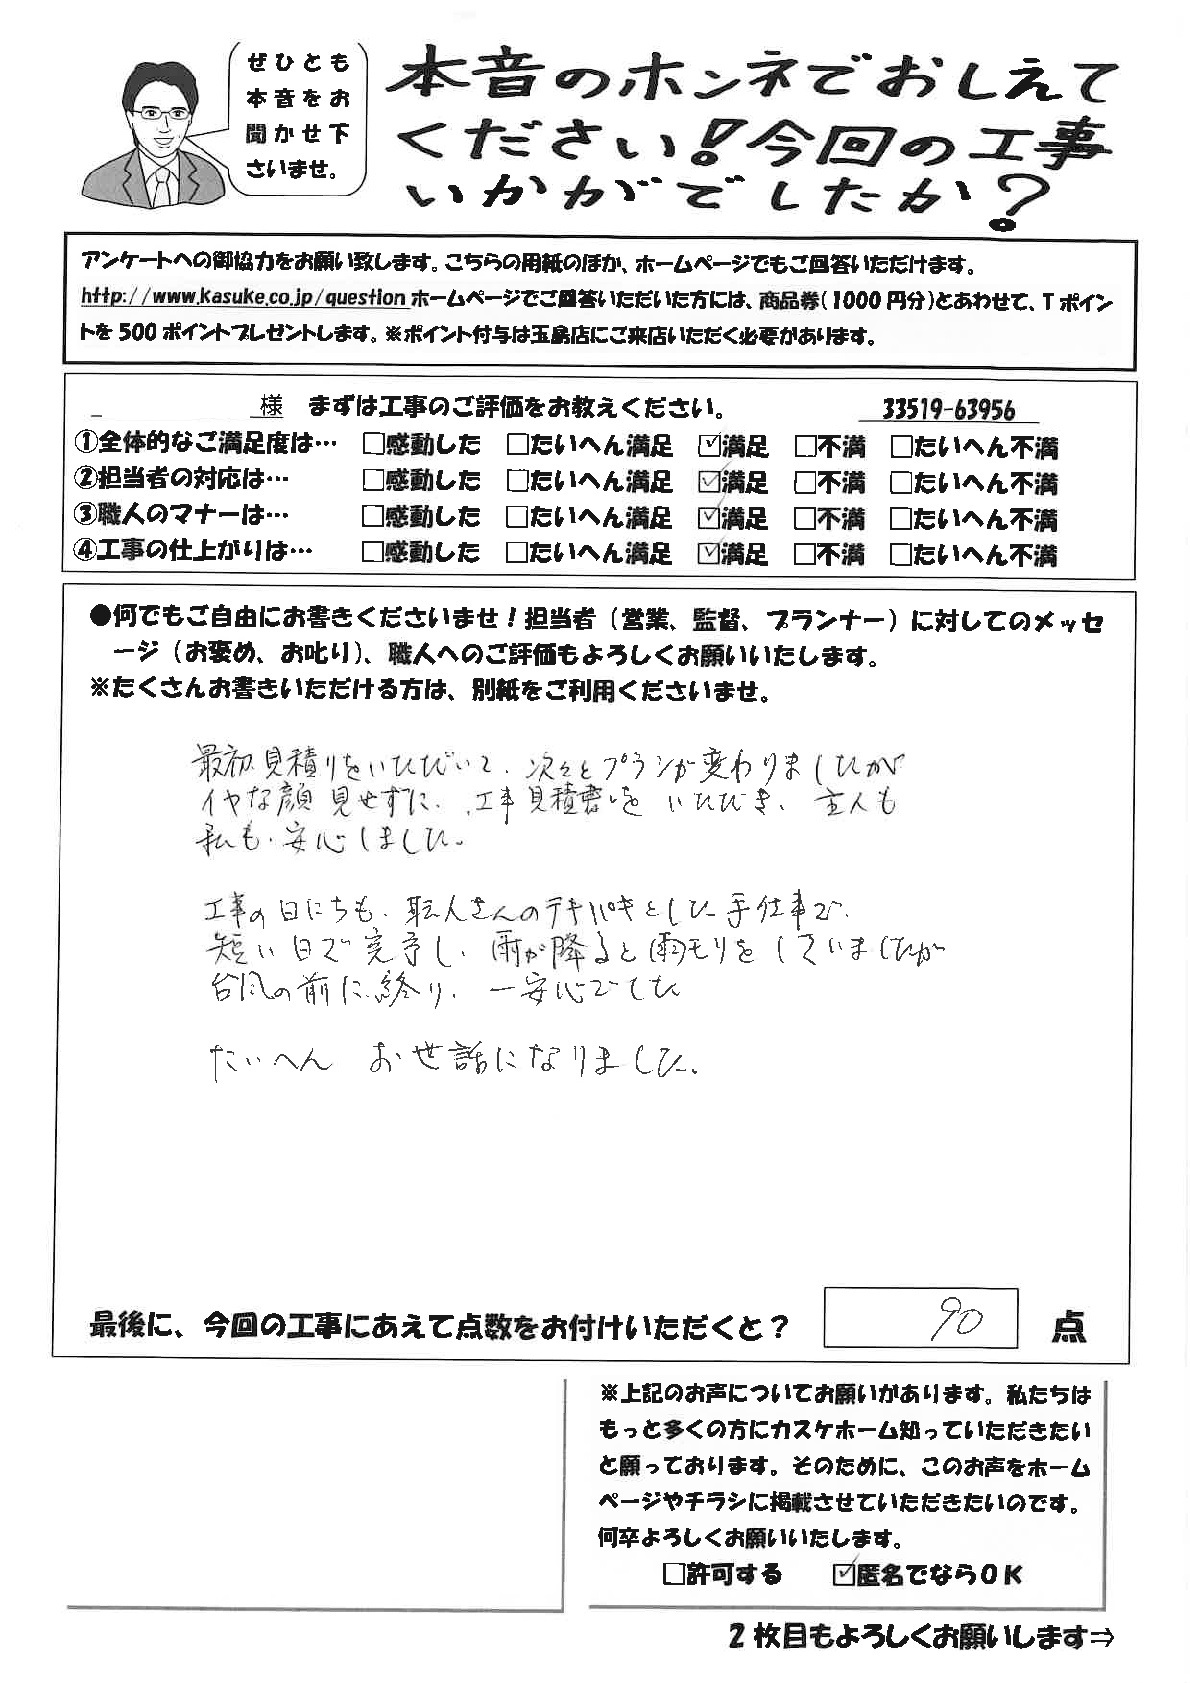 ぜひとも
本音をお
聞かせ下
さいませ。
本音のホンネでおしえて
ください!今回の工事
いかがでしたか?
アンケートへの御協力をお願い致します。こちらの用紙のほか、ホームページでもご回答いただけます。
http://www.kasuke.co.jp/questionホームページでご回答いただいた方には、商品券(1000円分)とあわせて、Tポイン
トを500ポイントプレゼントします。※ポイント付与は玉島店にご来店いただく必要があります。
様 まずは工事のご評価をお教えください。 33519-63956
①全体的なご満足度は… □感動した □たいへん満足 ☑満足 □不満 □たいへん不満
②担当者の対応は… □感動した □たいへん満足 ☑満足 □不満 □たいへん不満
③職人のマナーは… □感動した □たいへん満足 ☑満足 □不満 □たいへん不満
④工事の仕上がりは… □感動した □たいへん満足 ☑満足 □不満 □たいへん不満
●何でもご自由にお書きくださいませ!担当者(営業、監督、プランナー)に対してのメッセ
ージ(お褒め、お叱り)、職人へのご評価もよろしくお願いいたします。
※たくさんお書きいただける方は、別紙をご利用くださいませ。
最初見積りをいただいて、次々とプランが変わりましたが
イヤな顔見せずに、工事見積書をいただき、主人も
私も、安心しました。
工事の日にちも、職人さんのテキパキとした手仕事で、
短い日で完了し、雨が降ると雨モリをしていましたが
台風の前に終り、一安心でした
たいへん お世話になりました。
最後に、今回の工事にあえて点数をお付けいただくと? 90 点
※上記のお声についてお願いがあります。私たちは
もっと多くの方にカスケホーム知っていただきたい
と願っております。そのために、このお声をホーム
ページやチラシに掲載させていただきたいのです。
何卒よろしくお願いいたします。
□許可する ☑匿名でならOK
2枚目もよろしくお願いします⇒